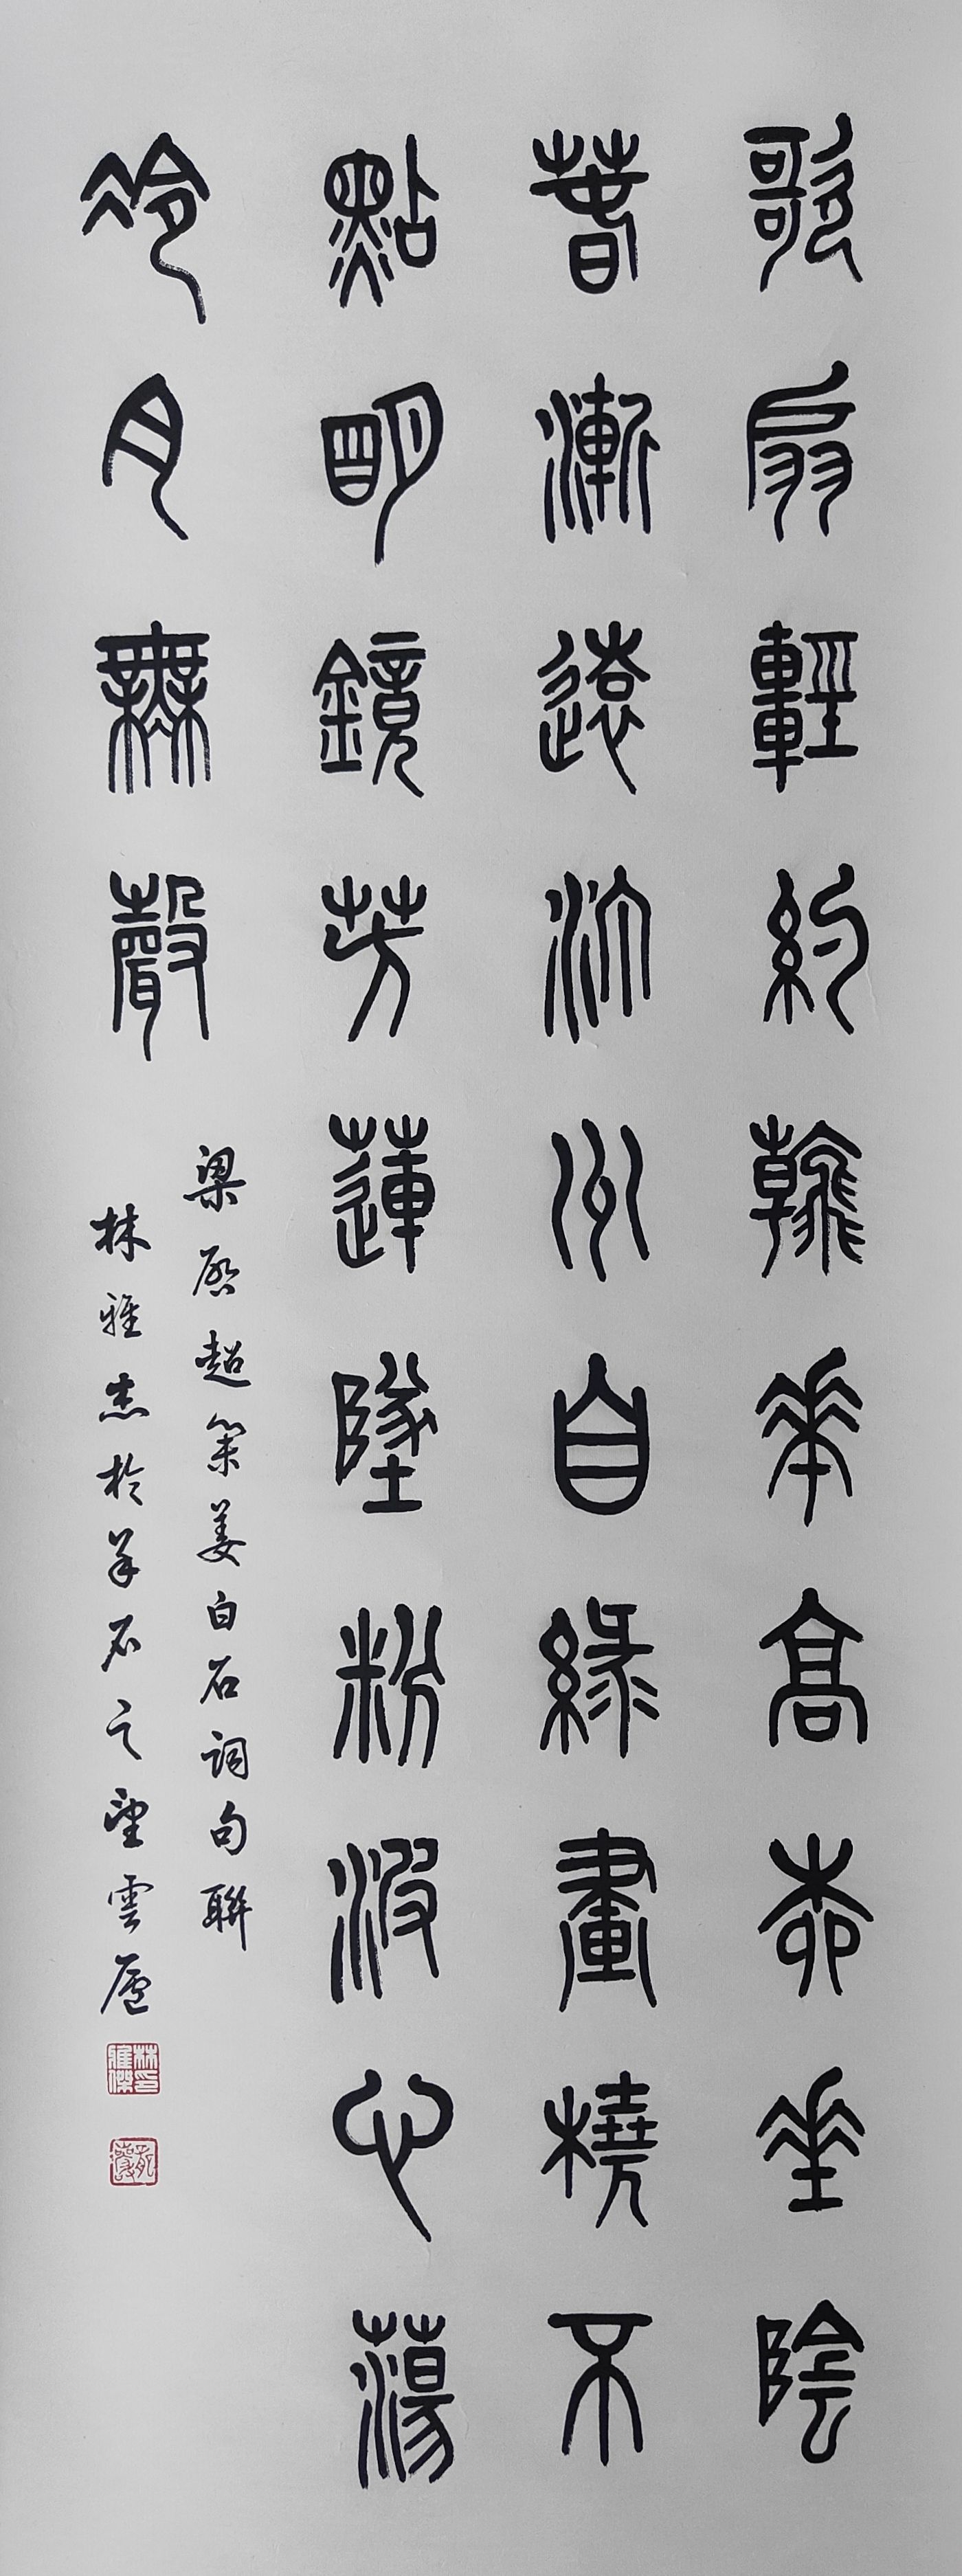 歌扇輕約飛花高柳垂陰
春漸遠汀州自綠畫橈不
點明鏡芳蓮墜粉波心蕩
冷月無聲
梁啟超集姜白石詞句聯
林雅杰於羊石之望雲廬
林雅傑印